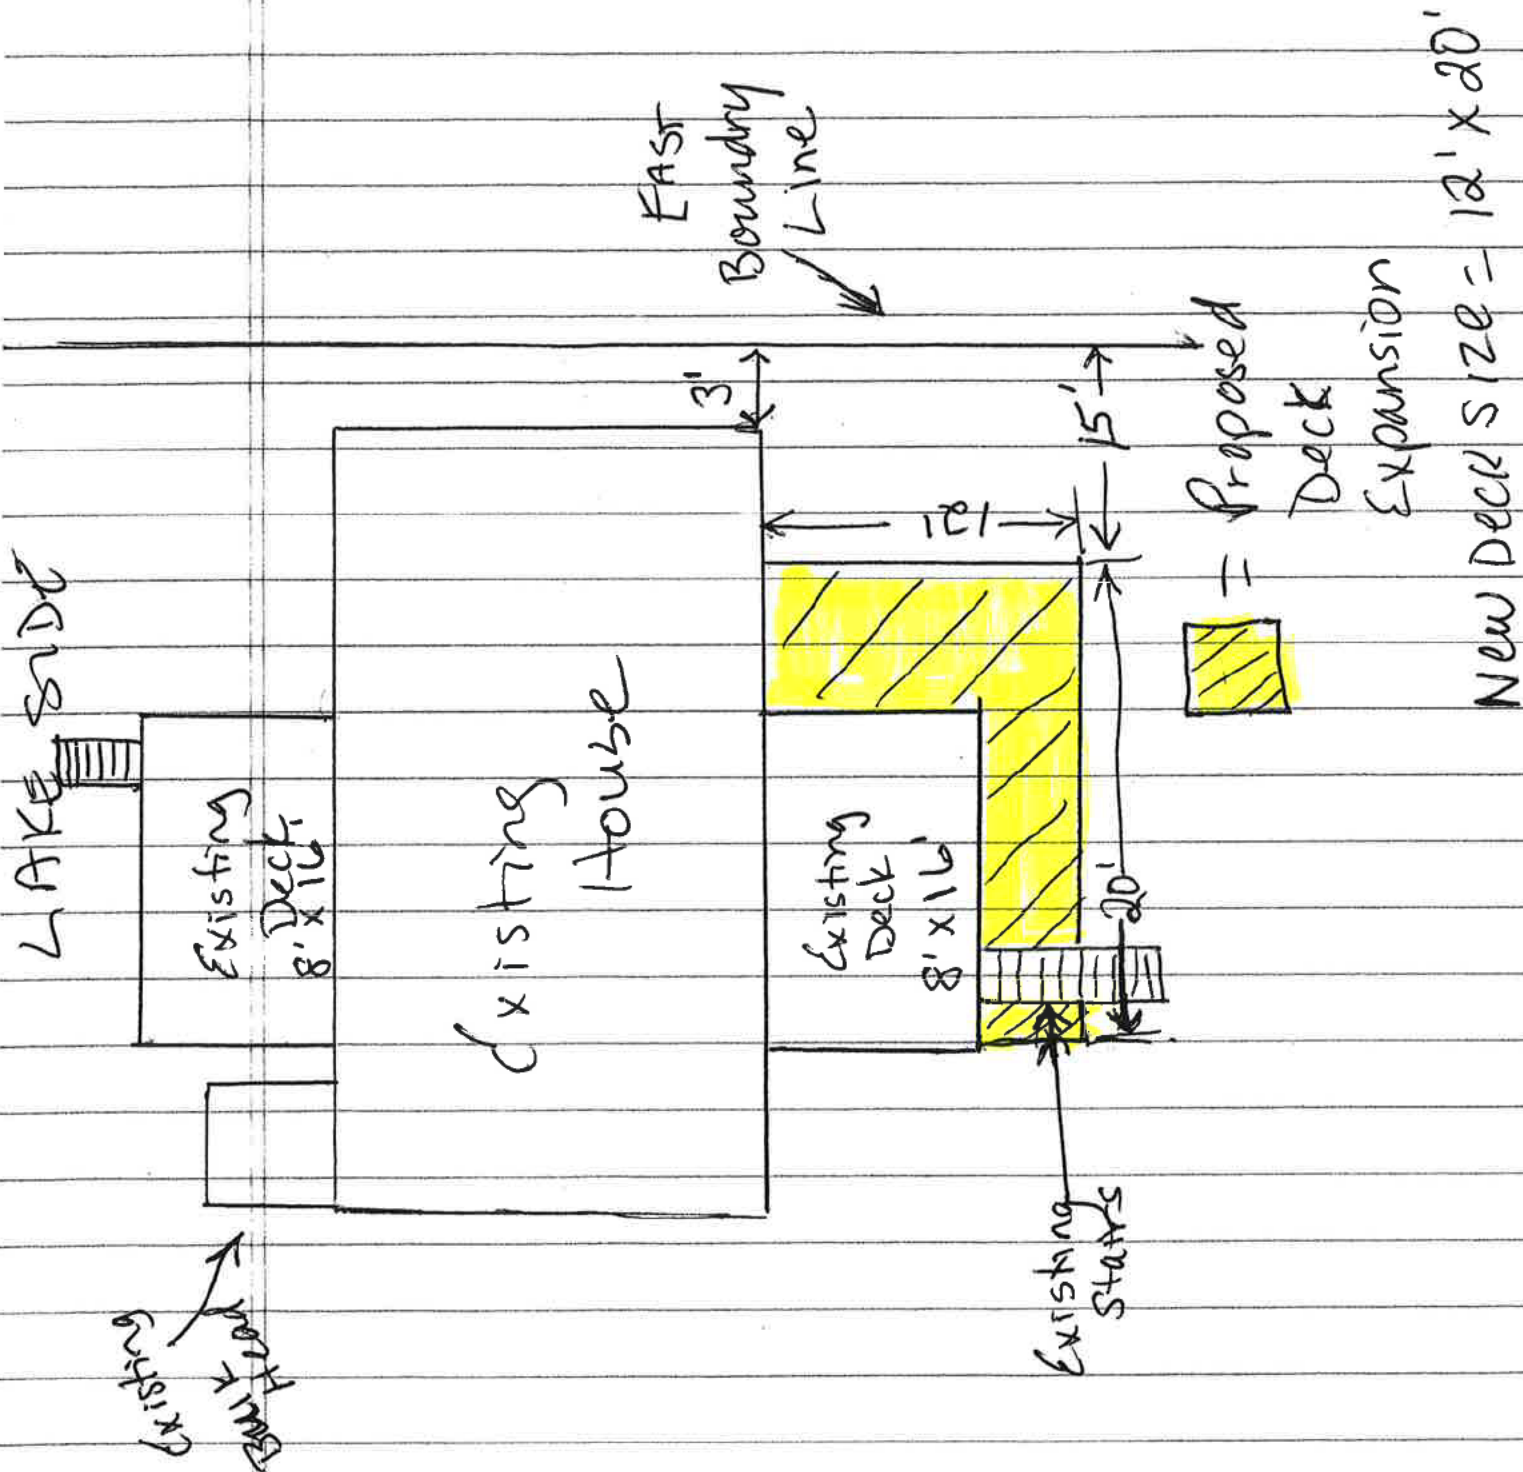 LAKE SIDE
Existing
Deck
8' x 16'
Existing
Bulk Head
Existing
House
East
Boundry
Line
3'
Existing
Deck
8' x 16'
12'
15'
20'
Existing
Stairs
= Proposed
Deck
Expansion
New Deck size = 12' x 20'